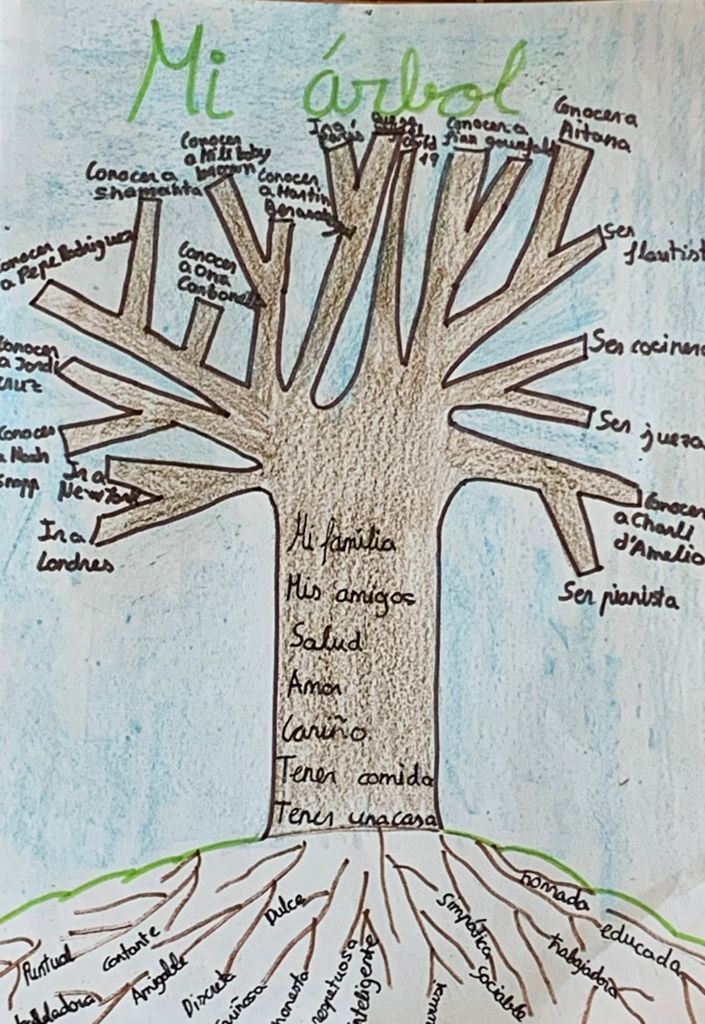 Mi árbol
Conocer a
Aitana
Ir a
París
Que se
Covid
19
Conocer a
Conocer
a Millie boby
brown
Conocer
a Martín
Conocer a
Shamanta
Conocer
a Pepe Rodríguez
Conocer
a Ona
Carbonell
Ser
flautist
Conocer
a Jordi
cruz
Ser cociner
Conocer
a Noah
snapp
Ser jueza
Ir a
New York
Ir a
Londres
Conocer
a Charli
d'Amelio
Ser pianista
Mi familia
Mis amigos
Salud
Amor
Cariño
Tener comida
Tener una casa
Puntual
contante
Amigable
Dulce
Discreta
honesta
respetuosa
inteligente
simpática
sociable
trabajadora
educada